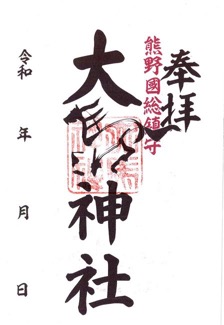 奉拝
熊野國総鎮守
大
神社
令和 年 月 日